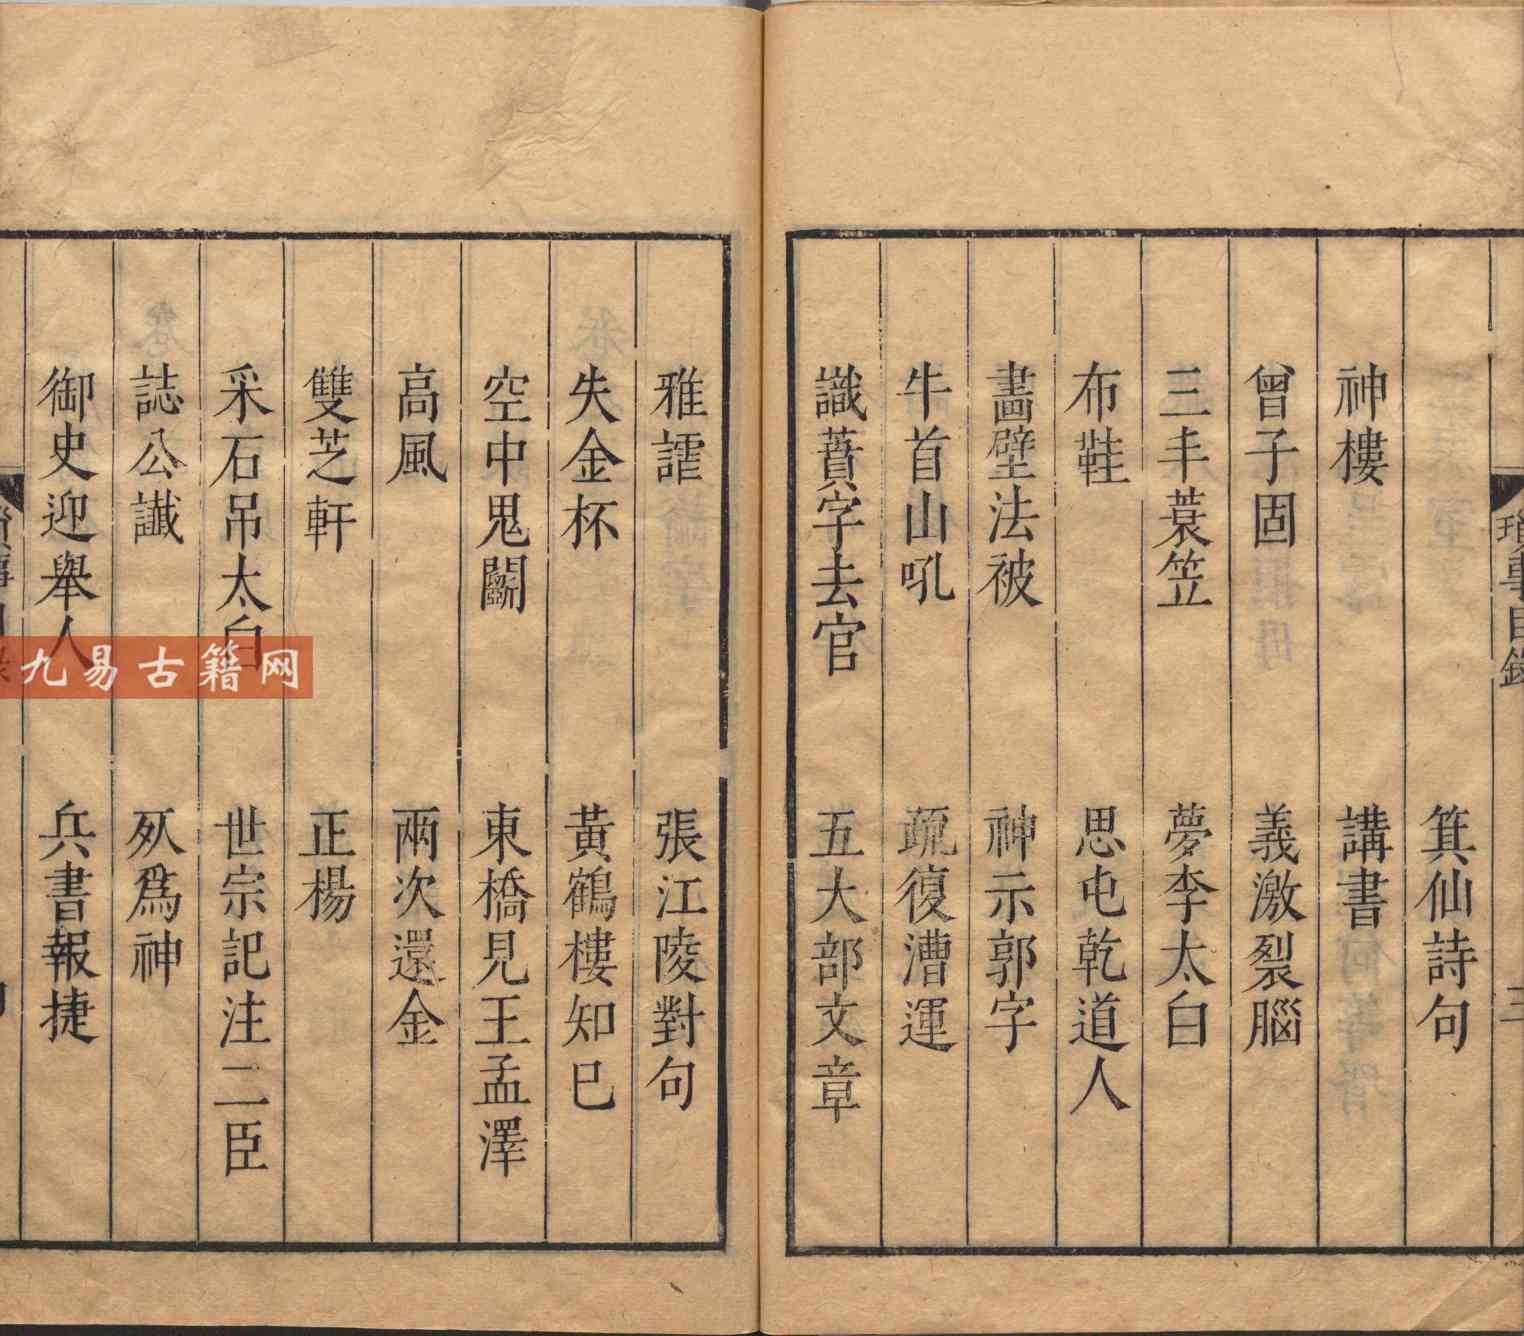 瑣事目錄 三
箕仙詩句
神樓 講書
曾子固 義激裂腦
三丰蓑笠 夢李太白
布鞋 思屯乾道人
畫壁法被 神示郭字
牛首山吼 疏復漕運
識蕡字去官 五大部文章
雅謔 張江陵對句
失金杯 黃鶴樓知巳
空中鬼鬭 東橋見王孟澤
高風 兩次還金
雙芝軒 正楊
采石吊太白 世宗記注二臣
誌公讖 死爲神
御史迎舉人 兵書報捷
九易古籍网